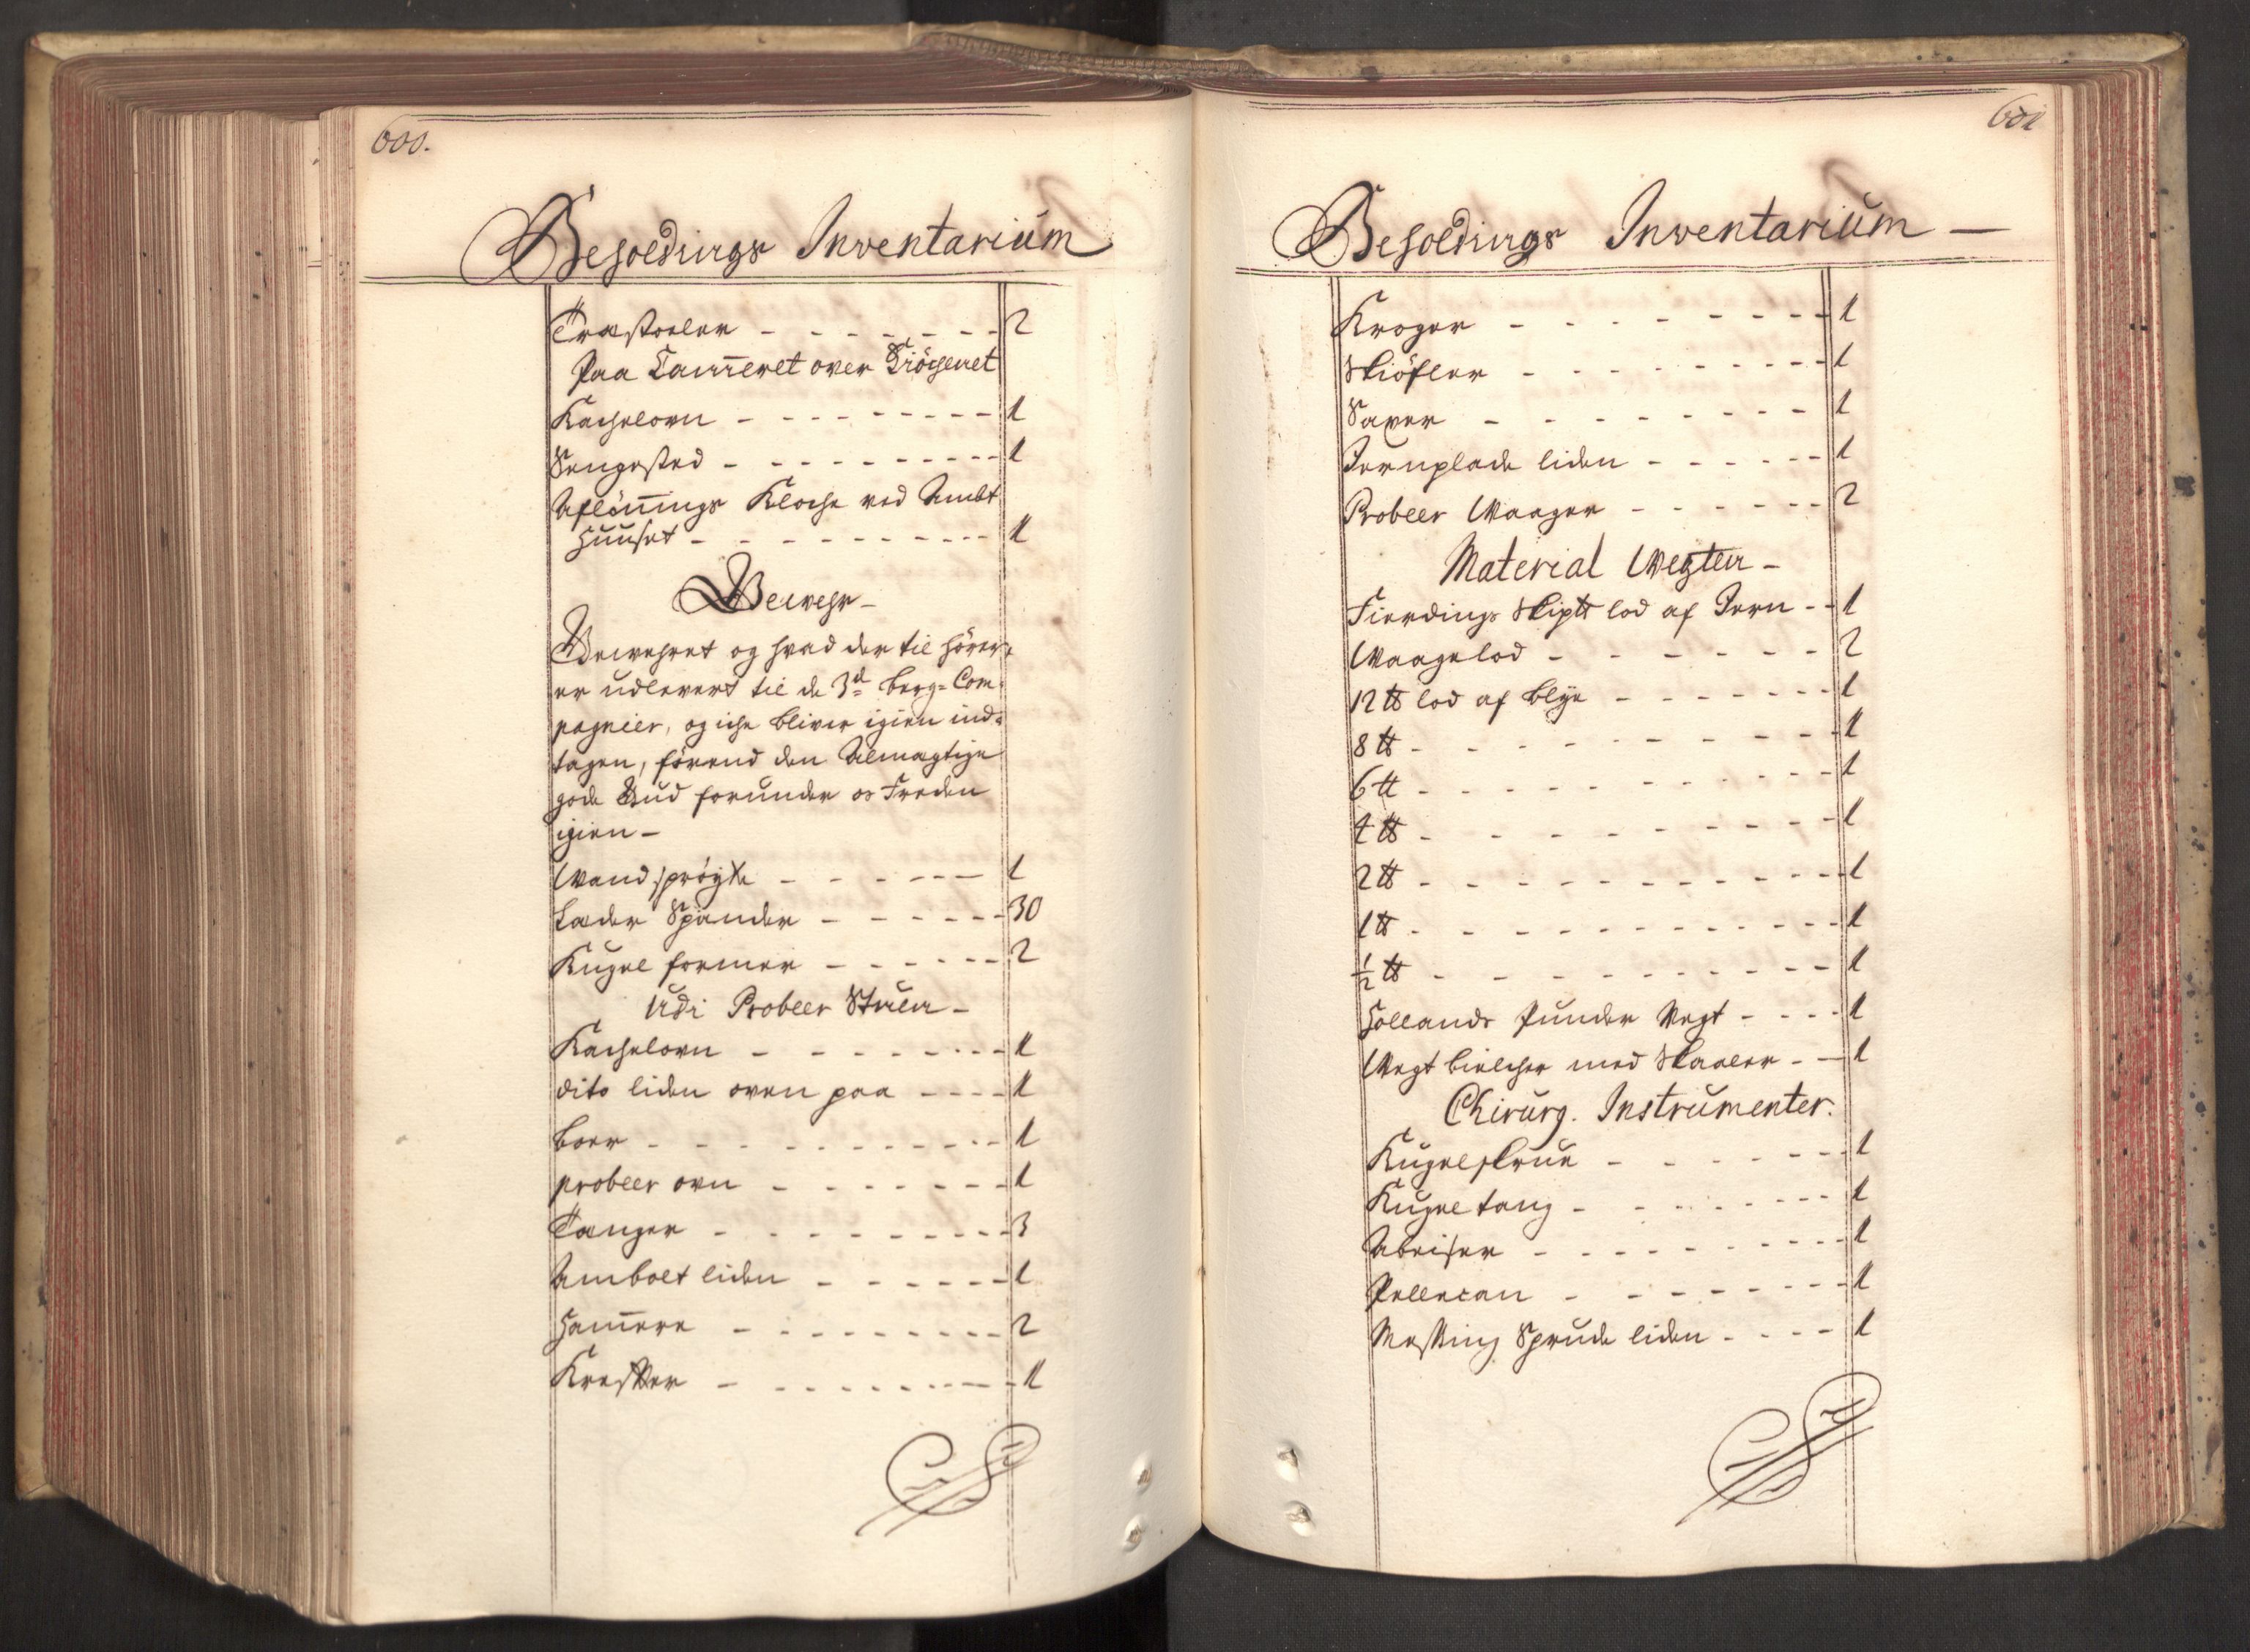 600.
Besoldings Inventarium
Træstoeler - - - - - - - 2
Paa Cam̅eret over Kiöchenet
Kachelovn - - - - - - - - - 1
Sengested - - - - - - - - - 1
Aflön̅ings Kloche ved Ambt
Huuset - - - - - - - - - - 1
Gewehr -
Gewehret og hvad der til hörer,
er udlevert til de 3de berg= Com-
pagnier, og iche bliver igien ind=
tagen, förend den Almagtige
gode Gud forunder os Freden
igien -
Wandspröyte - - - - - - - 1
Læder Spander - - - - - - 30
Kugel former - - - - - - 2
Udi Probeer Stuen -
Kachelovn - - - - - - - - 1
dito liden oven paa - - - - 1
boer - - - - - - - - - - - 1
probeer ovn - - - - - - - 1
Tænger - - - - - - - - - 3
Ambolt liden - - - - - - 1
Ham̅ere - - - - - - - - - 2
Kradser - - - - - - - - - 1
601
Besoldings Inventarium -
Kroger - - - - - - - - 1
Skiöfler - - - - - - - - 1
Saxer - - - - - - - - 1
Jernplade liden - - - - - - 1
Probeer Waager - - - - - - 2
Material Wegter -
Fierdings Skip℔ lod af Jern - - 1
Waagelod - - - - - - - 2
12 ℔ lod af blye - - - - - - - 1
8 ℔ - - - - - - - - - - 1
6 ℔ - - - - - - - - - - 1
4 ℔ - - - - - - - - - - 1
2 ℔ - - - - - - - - - - 1
1 ℔ - - - - - - - - - - 1
½ ℔ - - - - - - - - - - 1
Hollands Punder Vegt - - - - 1
Wegt bielcher med Skaaler - - 1
Chirurg. Instrumenter.
Kugelskrue - - - - - - - 1
Kugel tang - - - - - - - 1
- - - - - - - - - 1
Pellecan - - - - - - - - 1
Messing Sprude liden - - - - 1